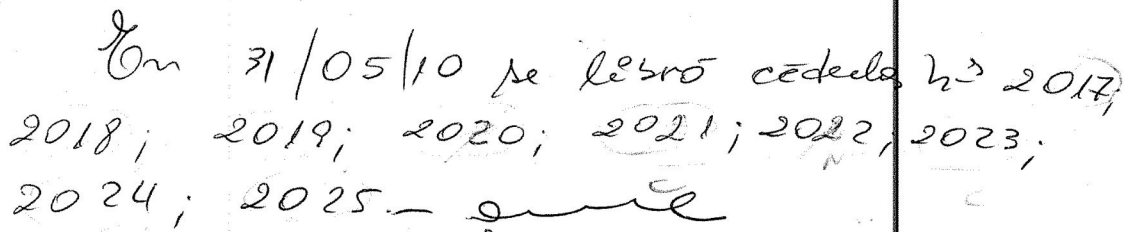 En 31/05/10 se libró cédula nº 2017;
2018; 2019; 2020; 2021; 2022; 2023;
2024; 2025.-